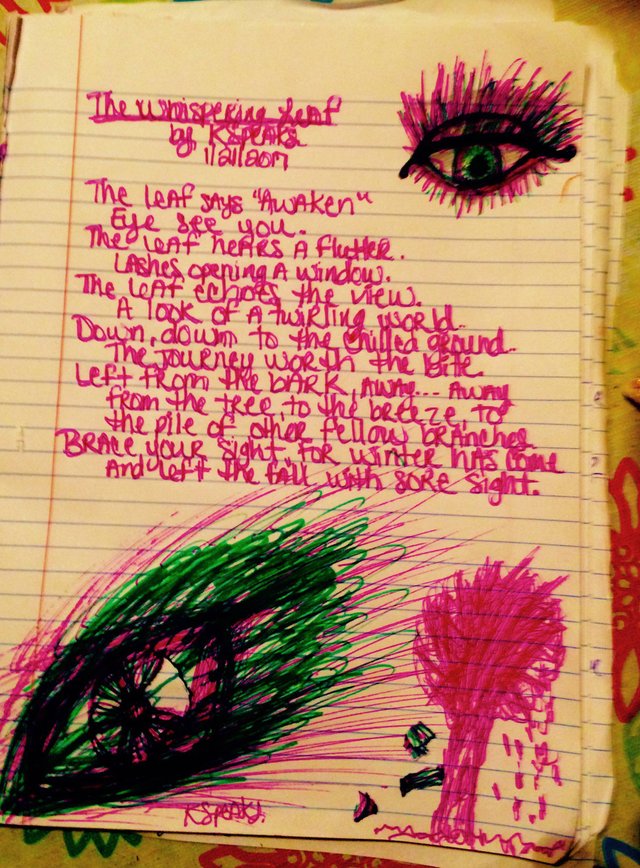 The Whispering Leaf
by KSpeaks
11/21/2017
The Leaf says "Awaken"
Eye see you.
The Leaf hears a flutter.
Lashes opening a window.
The Leaf echoes the view.
A look of a twirling world..
Down, down to the chilled ground..
The journey worth the bite.
Left from the bark, away... away
from the tree, to the breeze, to
the pile of other fellow branches.
Brace your sight, for winter has come
And left the fall with sore sight.
KSpeaks.